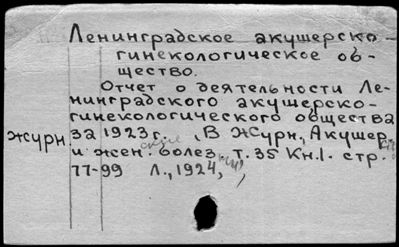 Ленинградское акушерско-
гинекологическое об-
щество.
Отчет о деятельности Ле-
нинградского акушерско-
гинекологического общества
за 1923 г. „В Журн., Акушер.
журн.
и жен. болез. т. 35 Кн.1. стр.
77-99 Л., 1924,